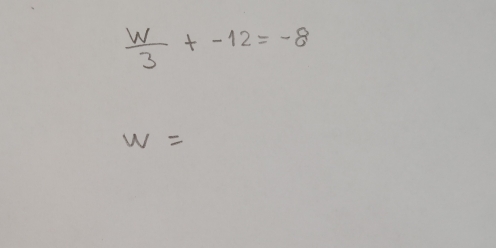 w/3 + -12 = -8
w =